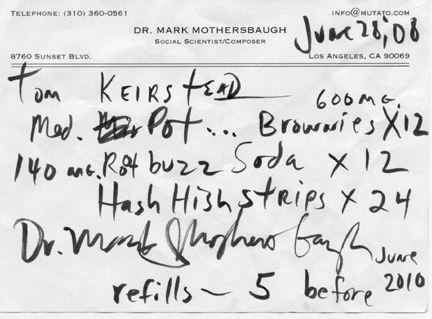 TELEPHONE: (310) 360-0561 INFO@MUTATO.COM
DR. MARK MOTHERSBAUGH
SOCIAL SCIENTIST/COMPOSER
June 28, '08
8760 SUNSET BLVD. LOS ANGELES, CA 90069
Tom KEIRSTEAD
600 MG.
Med. Pot... Brownies X12
140 MG. Pot buzz Soda X 12
Hash High strips X 24
Dr. Mark Mothersbaugh
refills - 5 before June 2010